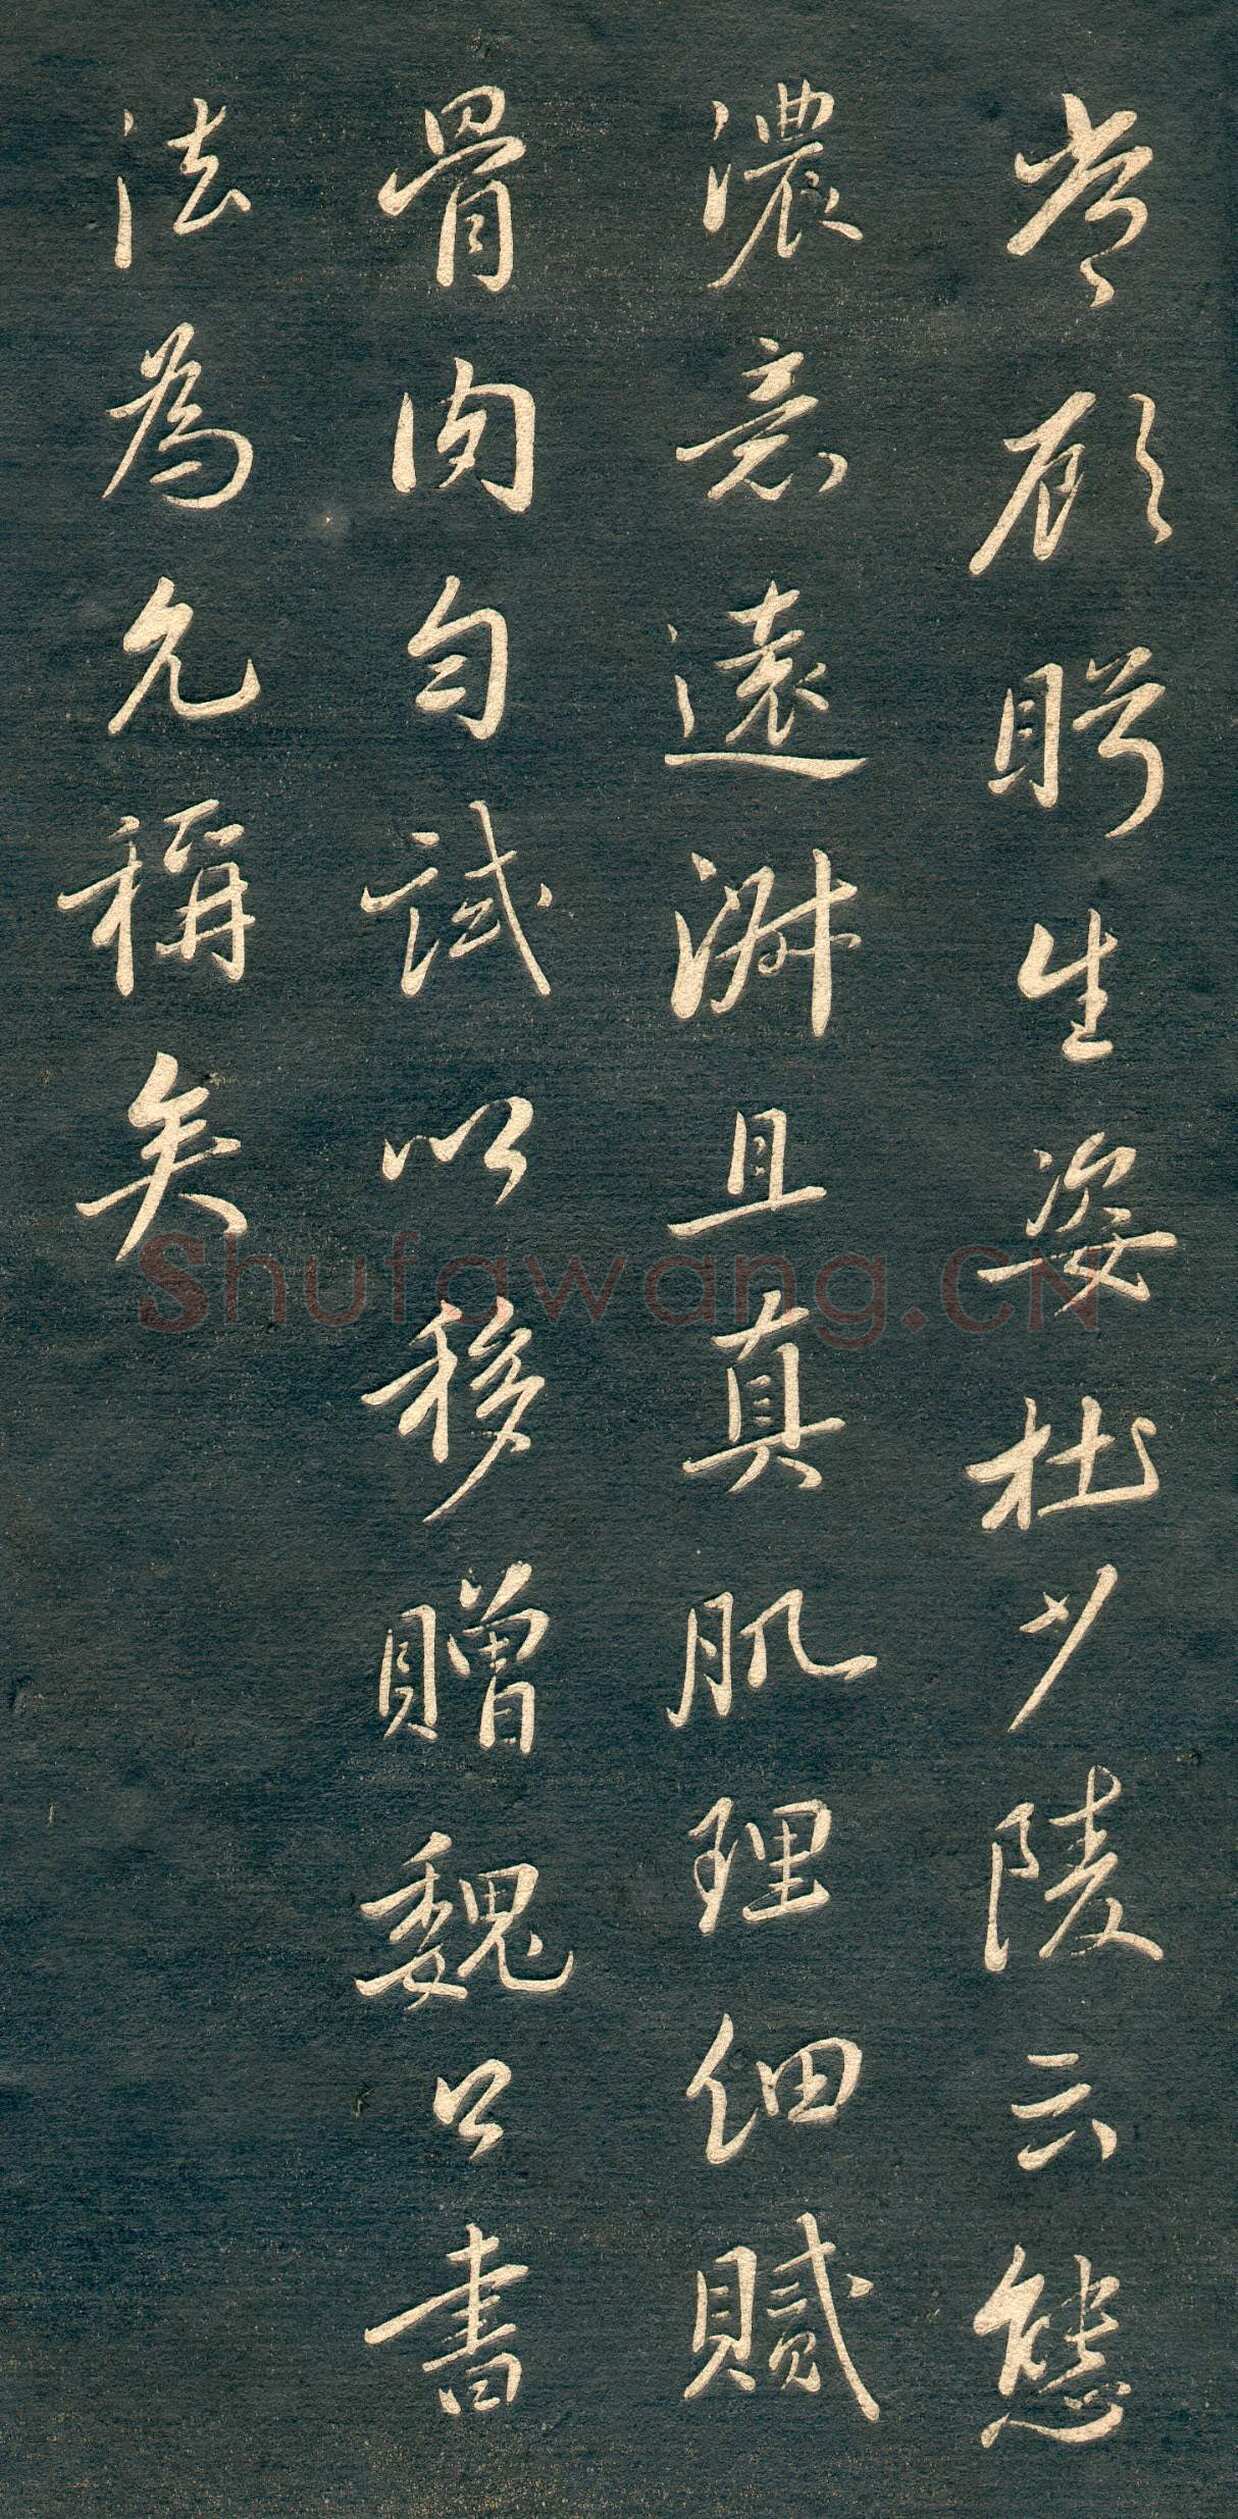 尝顾盻生姿杜少陵云態
濃意遠淋且真肌理細膩
骨肉勻試以移贈魏公書
法為允稱矣
Shufawang.CN